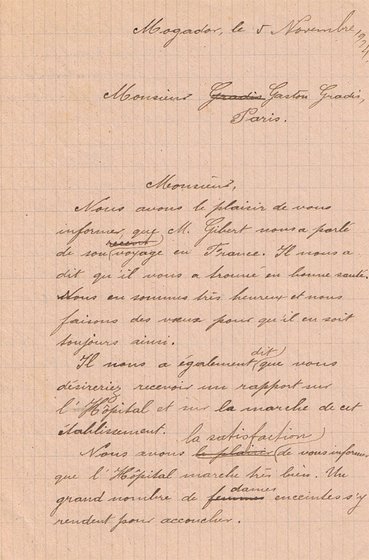 Mogador, le 5 Novembre, 1924
Monsieur Gradis Gaston Gradis,
Paris.
Monsieur,
Nous avons le plaisir de vous
informer, que M. Gibert nous a parlé
de son récent voyage en France. Il nous a
dit qu'il vous a trouvé en bonne santé.
Nous en sommes très heureux et nous
faisons des vœux pour qu'il en soit
toujours ainsi.
Il nous a également dit que vous
désireriez recevoir un rapport sur
l'Hôpital et sur la marche de cet
établissement.
la satisfaction
Nous avons le plaisir de vous informer
que l'Hôpital marche très bien. Un
grand nombre de femmes dames enceintes s'y
rendent pour accoucher.